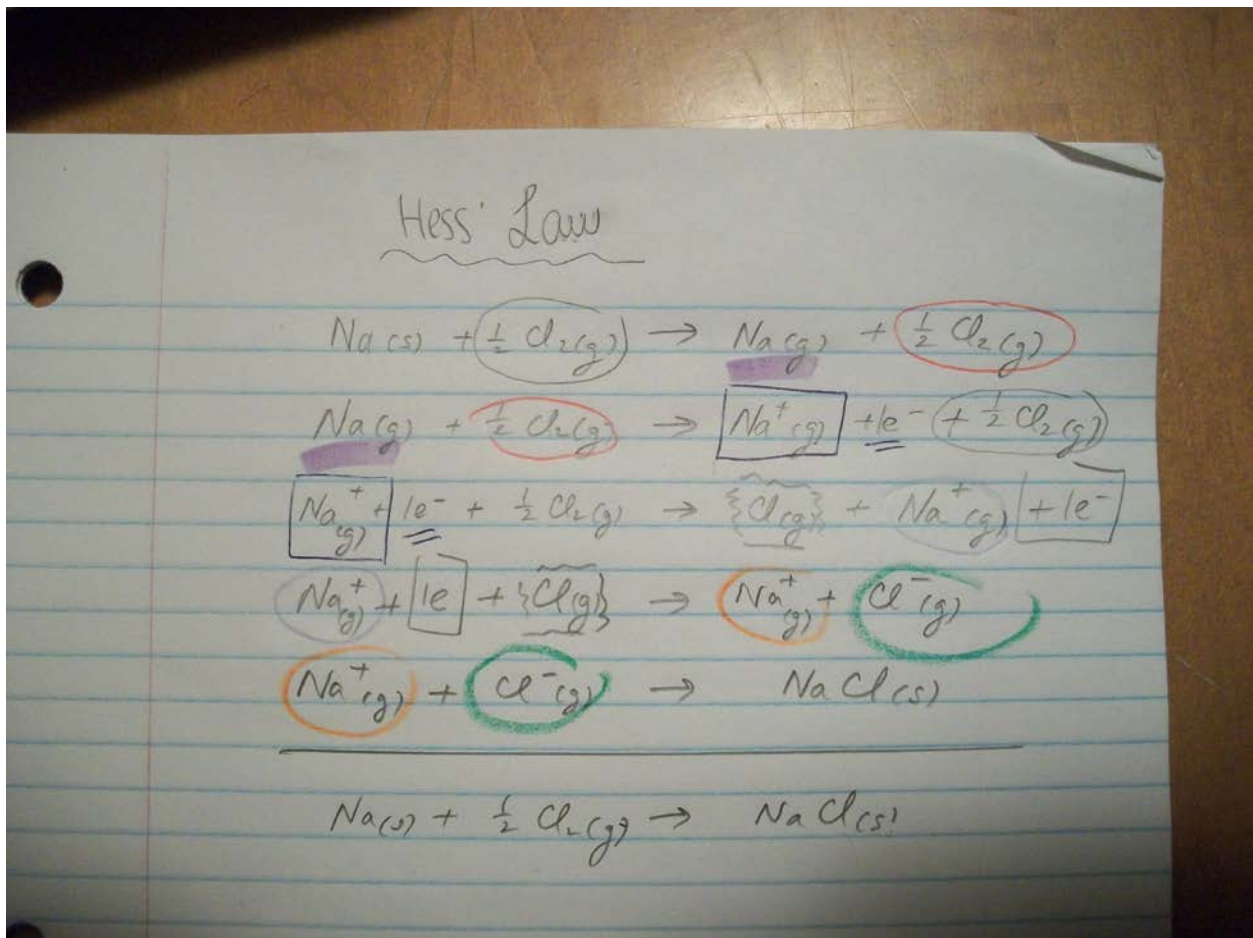 Hess' Law
Na(s) + ½ Cl₂(g) → Na(g) + ½ Cl₂(g)
Na(g) + ½ Cl₂(g) → Na⁺(g) + 1e⁻ + ½ Cl₂(g)
Na⁺(g) + 1e⁻ + ½ Cl₂(g) → {Cl(g)} + Na⁺(g) + 1e⁻
Na⁺(g) + 1e + {Cl(g)} → Na⁺(g) + Cl⁻(g)
Na⁺(g) + Cl⁻(g) → NaCl(s)
Na(s) + ½ Cl₂(g) → NaCl(s)